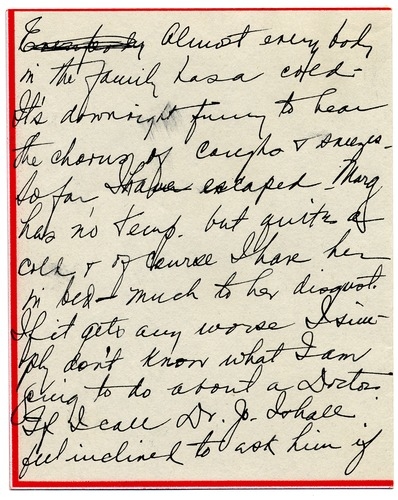 Everybody Almost every body
in the family has a cold-
It's downright funny to hear
the chorus of coughs & sneezes-
So far I have escaped. Marg
has no temp. but quite a
cold & of course I have her
in bed - much to her disgust.
If it gets any worse I sim-
ply don't know what I am
going to do about a Doctor.
If I call Dr. Jo. I shall
feel inclined to ask him if